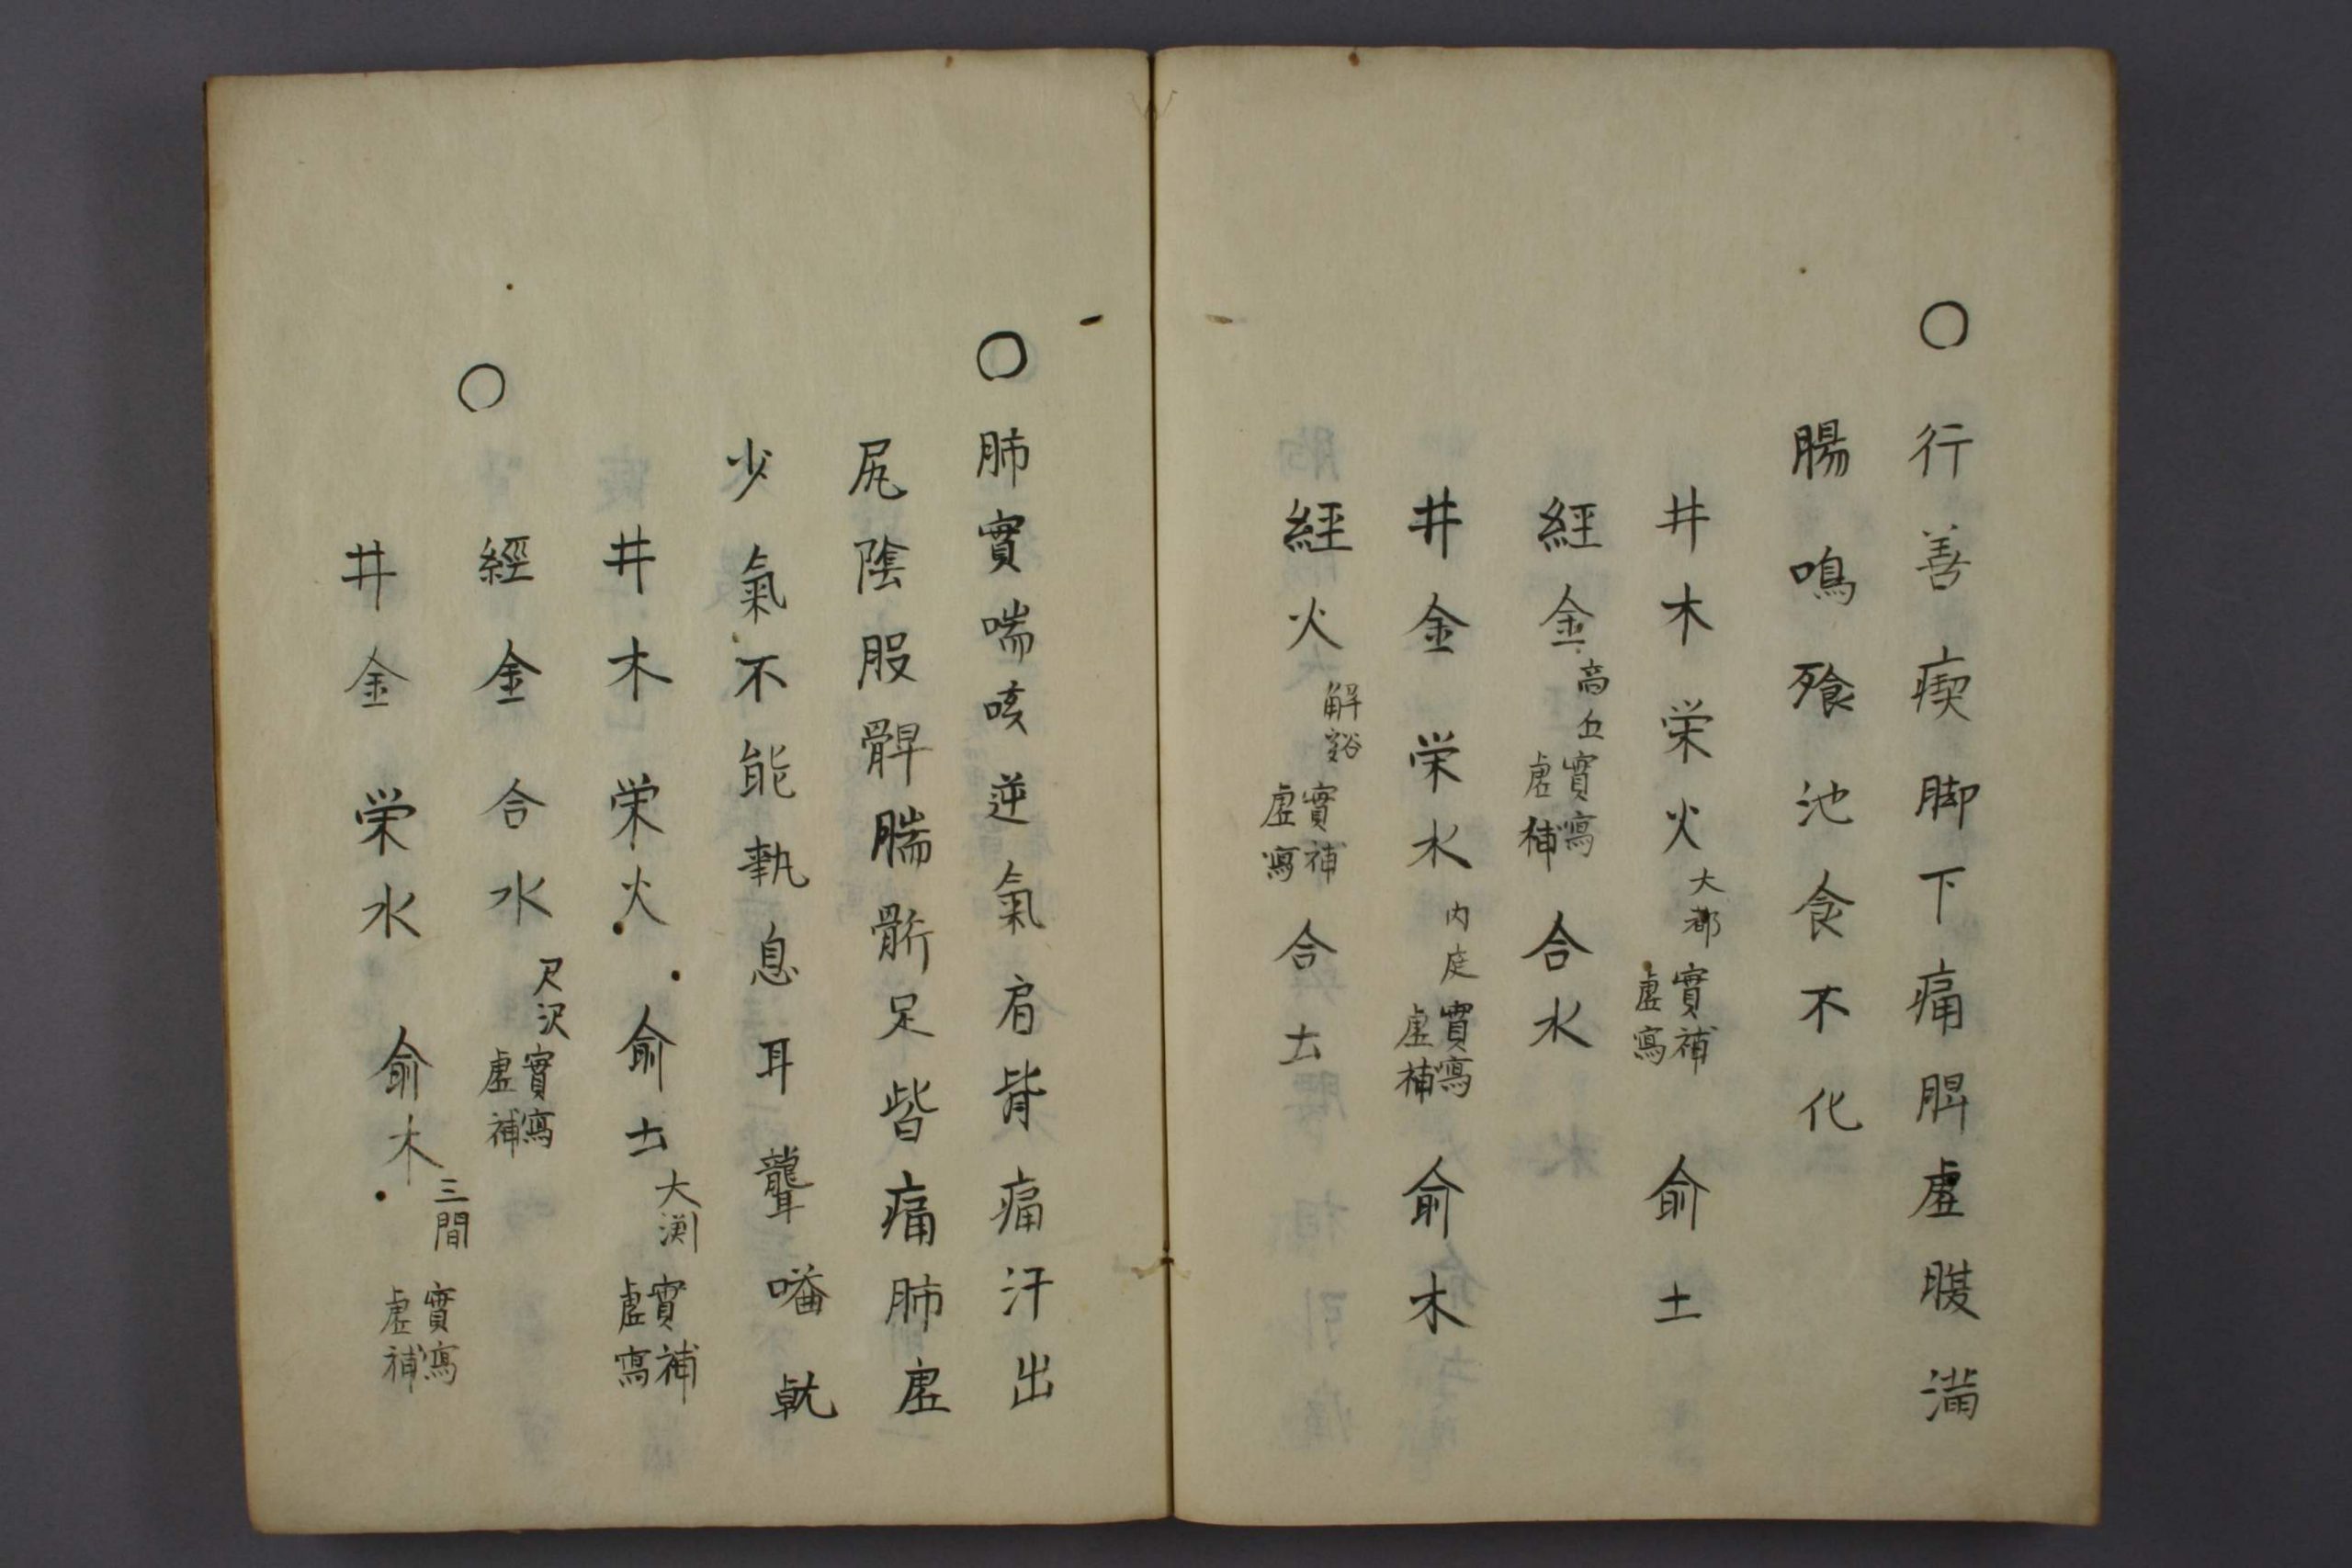 ○行善瘈脚下痛脾虚腹満
腸鳴飱池食不化
井木栄火大都實補虚寫俞土
経金商丘實寫虚補合水
井金栄水内庭實寫虚補俞木
経火解谿實補虚寫合土
○肺實喘咳逆氣肩背痛汗出
尻陰股髀腨䯒足皆痛肺虚
少氣不能執息耳聾嗌乾
井木栄火俞土大渕實補虚寫
○經金合水尺沢實寫虚補
井金栄水俞木三間實寫虚補